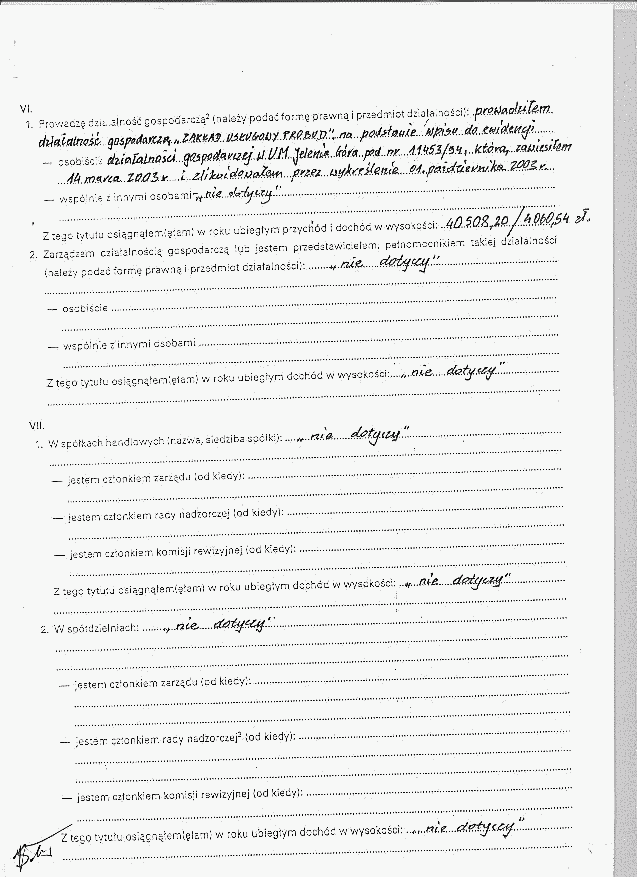 VI.
1. Prowadzę działalność gospodarczą² (należy podać formę prawną i przedmiot działalności): prowadziłem
działalność gospodarczą „ZAKŁAD USŁUGOWY PROBUD", na podstawie wpisu do ewidencji
— osobiście działalności gospodarczej w U.M. Jelenia Góra pod nr 11453/94, którą zawiesiłem
14 marca 2003 r. i zlikwidowałem przez wykreślenie 01. października 2003 r.
— wspólnie z innymi osobami „nie dotyczy"
Z tego tytułu osiągnąłem(ęłam) w roku ubiegłym przychód i dochód w wysokości: 40508,20 / 4060,54 zł.
2. Zarządzam działalnością gospodarczą lub jestem przedstawicielem, pełnomocnikiem takiej działalności
(należy podać formę prawną i przedmiot działalności): „nie dotyczy"
— osobiście
— wspólnie z innymi osobami
Z tego tytułu osiągnąłem(ęłam) w roku ubiegłym dochód w wysokości: „nie dotyczy"
VII.
1. W spółkach handlowych (nazwa, siedziba spółki): „nie dotyczy"
— jestem członkiem zarządu (od kiedy):
— jestem członkiem rady nadzorczej (od kiedy):
— jestem członkiem komisji rewizyjnej (od kiedy):
Z tego tytułu osiągnąłem(ęłam) w roku ubiegłym dochód w wysokości: „nie dotyczy"
2. W spółdzielniach: „nie dotyczy"
— jestem członkiem zarządu (od kiedy):
— jestem członkiem rady nadzorczej³ (od kiedy):
— jestem członkiem komisji rewizyjnej (od kiedy):
Z tego tytułu osiągnąłem(ęłam) w roku ubiegłym dochód w wysokości: „nie dotyczy"